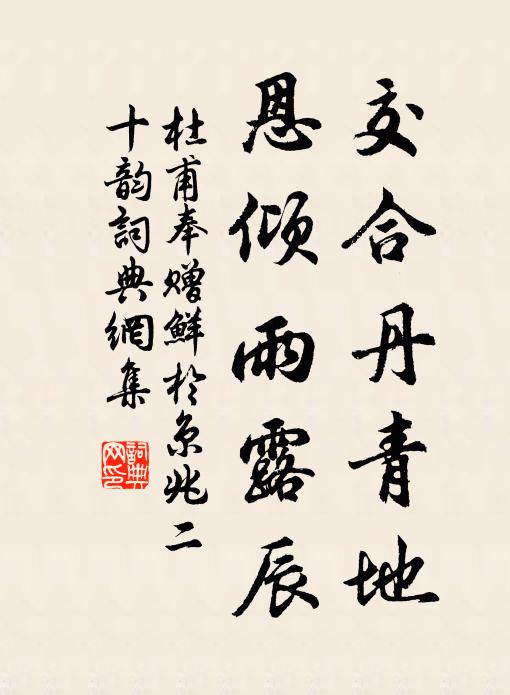 交合丹青地
恩倾雨露辰
杜甫奉赠鲜於京兆二
十韵詞典網集
詞典
网印